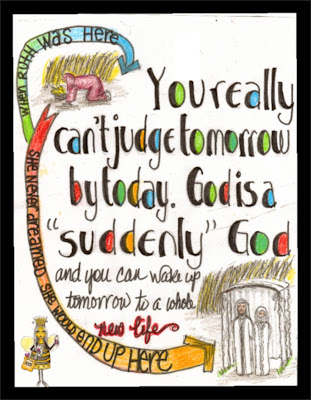 when RUTH WAS Here
she never dreamed she would END UP HERE
You really
can't judge tomorrow
by today. God is a
"suddenly" God
and you can wake up
tomorrow to a whole
new life